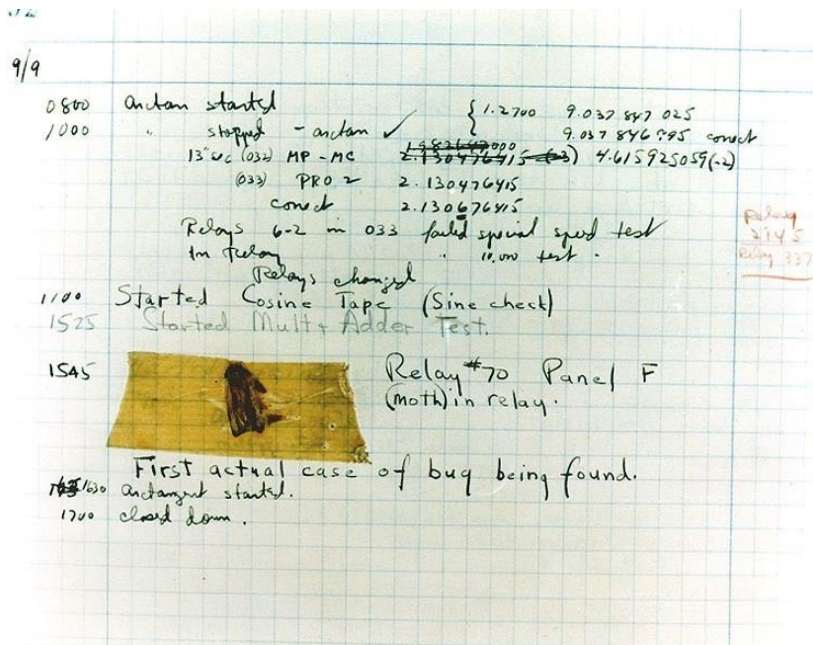 9/9
0800 arctan started { 1.2700 9.037 847 025
1000 " stopped - arctan ✓ 9.037 846 995 correct
13" sec (032) MP - MC 2.130476415 4.615925059(-2)
(033) PRO 2 2.130476415
correct 2.130676415
Relays 6-2 in 033 failed special speed test
In Relay " 10,000 test.
Relay
2145
Relay 337
Relays changed
1100 Started Cosine Tape (Sine check)
1525 Started Mult + Adder Test.
1545 Relay #70 Panel F
(moth) in relay.
First actual case of bug being found.
1630 arctangent started.
1700 closed down.